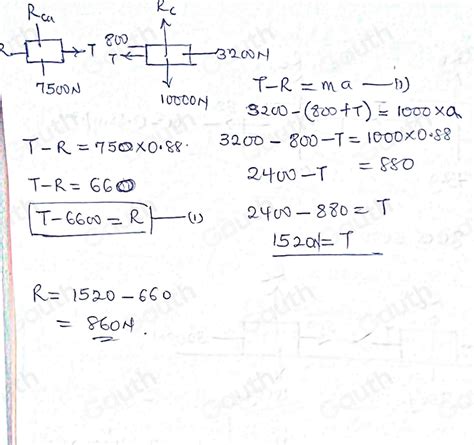 Rca
Rc
R T 800 T 3200N
7500N
10000N
T-R = ma —(1)
3200-(800+T) = 1000×a
T-R = 750×0.88.
3200-800-T = 1000×0.88
2400-T = 880
T-R = 660
T-6600 = R —(1)
2400-880 = T
1520N = T
R = 1520-660
= 860N.
Gauth